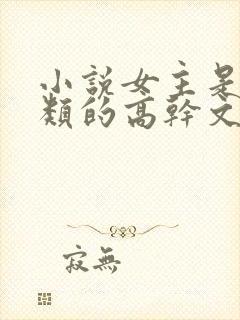 小說女主是
類的高幹文
寂無